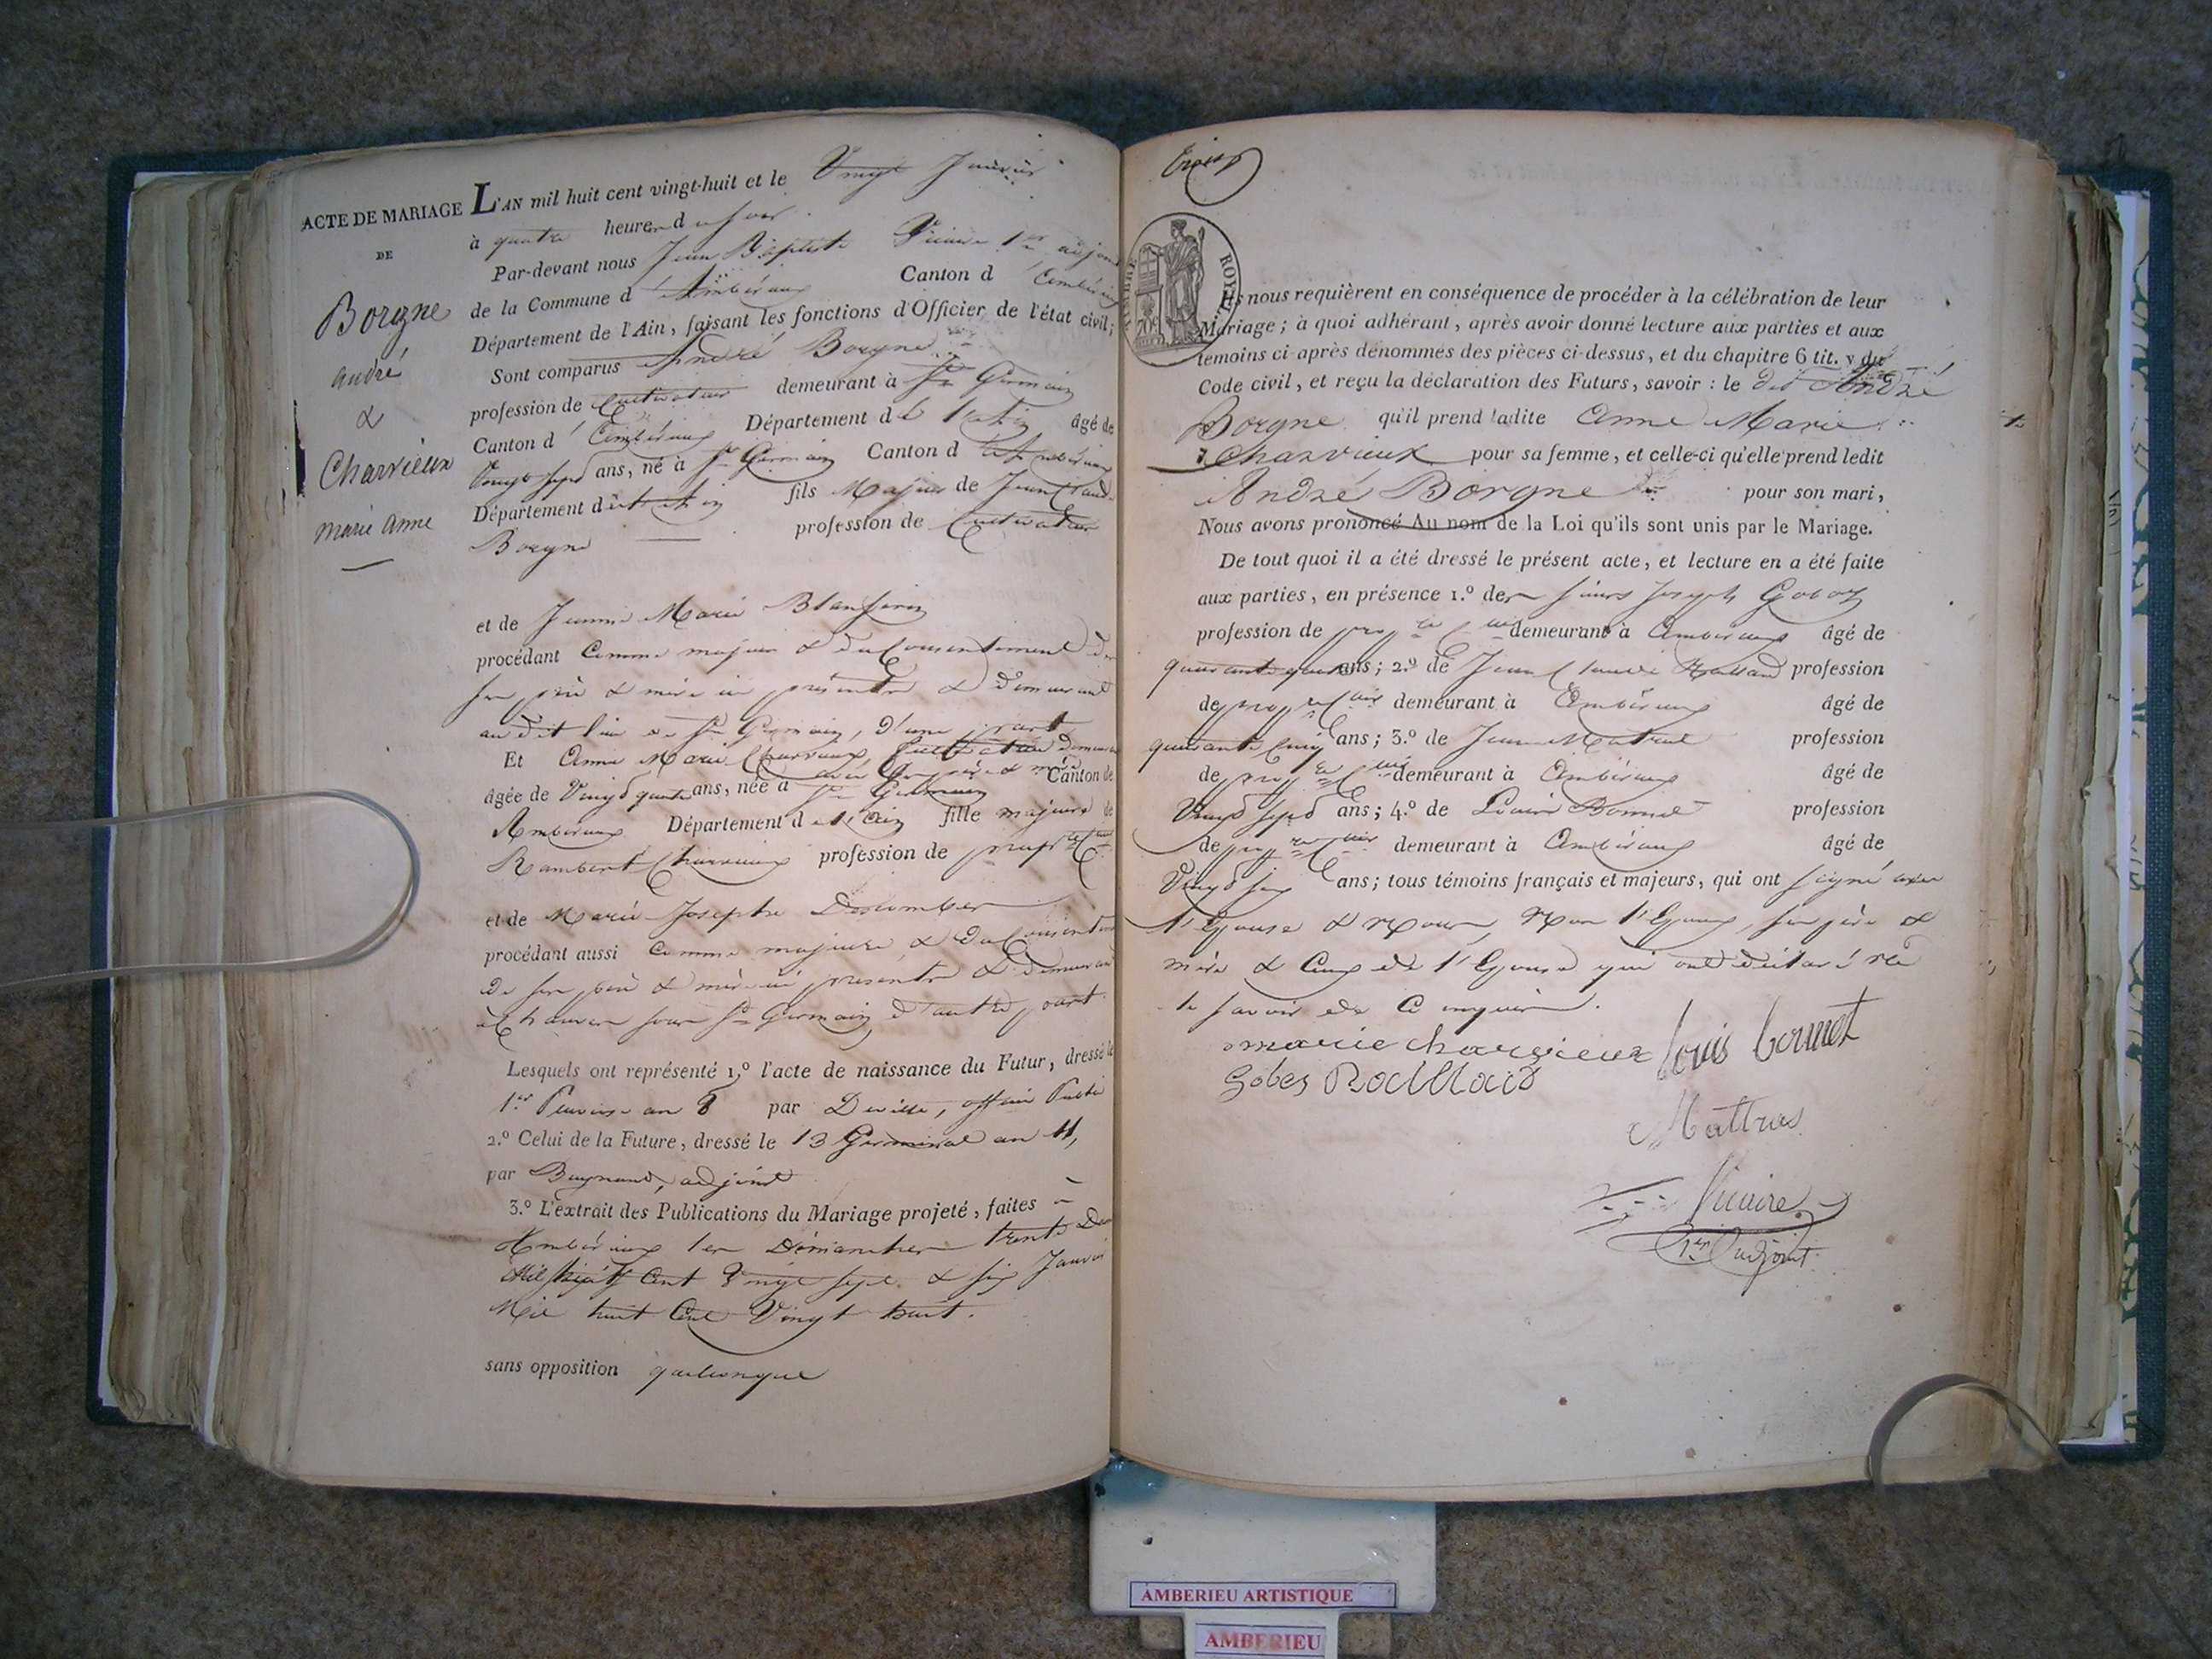 ACTE DE MARIAGE
DE
Borgne
andré
&
Charvieux
marie anne
L'AN mil huit cent vingt-huit et le Vingt Janvier
à quatre heures du soir
Par-devant nous Jean Baptiste Vicaire 1er adjoint
de la Commune d'Ambérieux Canton d'Ambérieux
Département de l'Ain, faisant les fonctions d'Officier de l'état civil;
Sont comparus André Borgne
profession de Cultivateur demeurant à St Germain
Canton d'Ambérieux Département de l'Ain âgé de
Vingt sept ans, né à St Germain Canton d'Ambérieux
Département de l'Ain fils Majeur de Jean Claude
Borgne profession de Cultivateur
et de Jeanne Marie
procédant Comme majeur & du Consentement de
ses père & mère ici présents & demeurant
au dit lieu de St Germain, d'une part
Et Anne Marie Charvieux, demeurant
avec ses père & mère
âgée de Vingt quatre ans, née à St Germain Canton de
Ambérieux Département de l'Ain fille majeure de
Rambert Charvieux profession de propre
et de Marie Josephe
procédant aussi Comme majeure & du Consentement
de ses père & mère ici présents & demeurant
sous St Germain d'autre part
Lesquels ont représenté 1.º l'acte de naissance du Futur, dressé le
1er an 8 par officier Public
2.º Celui de la Future, dressé le 13 Germinal an 11,
par adjoint
3.º L'extrait des Publications du Mariage projeté, faites à
Ambérieux les Dimanches trente Dec
Mil huit Cent Vingt sept & six Janvier
Mil huit Cent Vingt huit.
sans opposition quelconque
trois
TIMBRE ROYAL
Ils nous requièrent en conséquence de procéder à la célébration de leur
Mariage; à quoi adhérant, après avoir donné lecture aux parties et aux
témoins ci-après dénommés des pièces ci-dessus, et du chapitre 6 tit. v du
Code civil, et reçu la déclaration des Futurs, savoir: le dit André
Borgne qu'il prend ladite Anne Marie
Charvieux pour sa femme, et celle-ci qu'elle prend ledit
André Borgne pour son mari,
Nous avons prononcé Au nom de la Loi qu'ils sont unis par le Mariage.
De tout quoi il a été dressé le présent acte, et lecture en a été faite
aux parties, en présence 1.º des sieurs Joseph
profession de demeurant à Ambérieux âgé de
ans; 2.º de Jean Claude profession
de demeurant à Ambérieux âgé de
quarante Cinq ans; 3.º de Jean profession
de demeurant à Ambérieux âgé de
Vingt sept ans; 4.º de Bonnet profession
de demeurant à Ambérieux âgé de
Vingt six ans; tous témoins français et majeurs, qui ont signé avec
l'Epouse & nous, Non l'Epoux, ses père &
mère & Ceux de l'Epouse qui ont déclaré ne
le savoir de Ce requis.
marie charvieux louis bonnet
Mattras
Vicaire
1er adjoint
AMBERIEU ARTISTIQUE
AMBERIEU